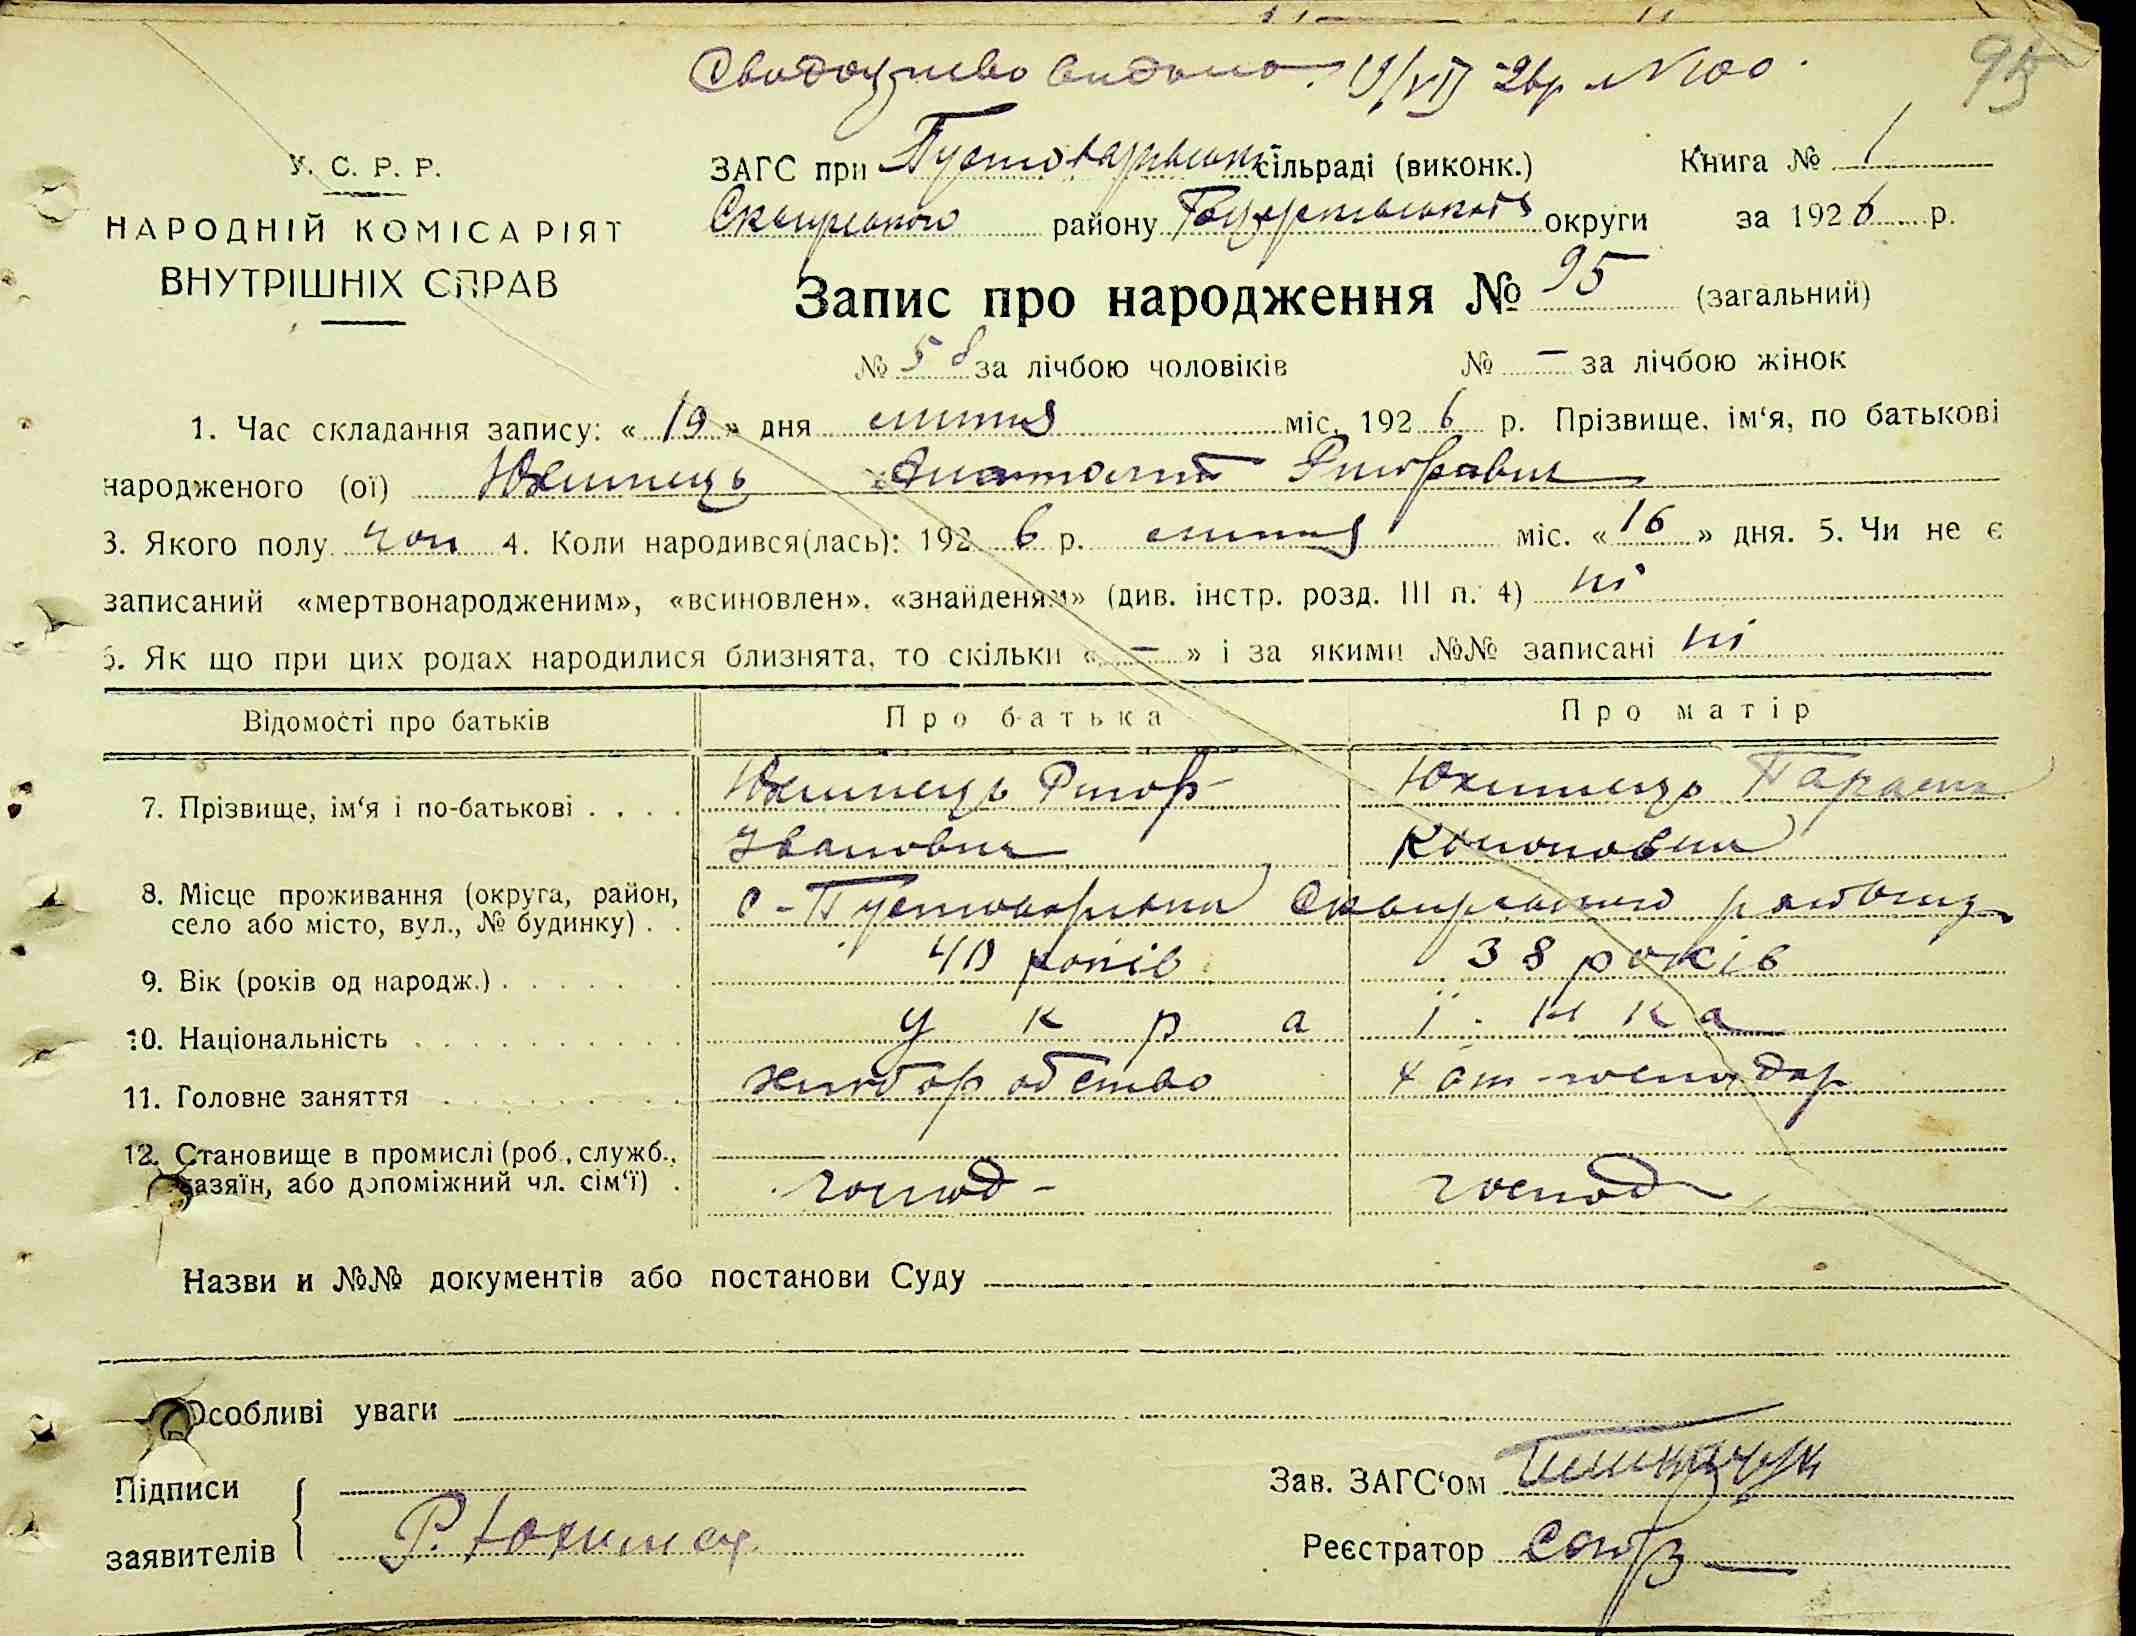 Свидоцтво видано 19/VII 26р №100.
95
У. С. Р. Р.
НАРОДНІЙ КОМІСАРІЯТ
ВНУТРІШНІХ СПРАВ
ЗАГС при Пустоварівській сільраді (виконк.) Книга № 1
Сквирського району Білоцерківської округи за 1926 р.
Запис про народження № 95 (загальний)
№ 58 за лічбою чоловіків № – за лічбою жінок
1. Час складання запису: « 19 » дня липня міс. 1926 р. Прізвище, ім‘я, по батькові
народженого (ої) Юхимець Анатолій Ригорович
3. Якого полу чол 4. Коли народився(лась): 1926 р. липня міс. « 16 » дня. 5. Чи не є
записаний «мертвонародженим», «всиновлен», «знайденям» (див. інстр. розд. III п. 4) ні
6. Як що при цих родах народилися близнята, то скільки « – » і за якими №№ записані ні
Відомості про батьків Про батька Про матір
7. Прізвище, ім‘я і по-батькові . . . . Юхимець Ригор Юхимець Параска
Іванович Кононовна
8. Місце проживання (округа, район, село або місто, вул., № будинку) . . с-Пустоварівка Сквирського району
9. Вік (років од народж.) 40 років 38 років
10. Національність укра їнка
11. Головне заняття хліборобство хат-господар
12. Становище в промислі (роб., служб., хазяїн, або допоміжний чл. сім‘ї) . господ- господ
Назви и №№ документів або постанови Суду
Особливі уваги
Підписи
заявителів Р. Юхимец
Зав. ЗАГС‘ом
Реєстратор